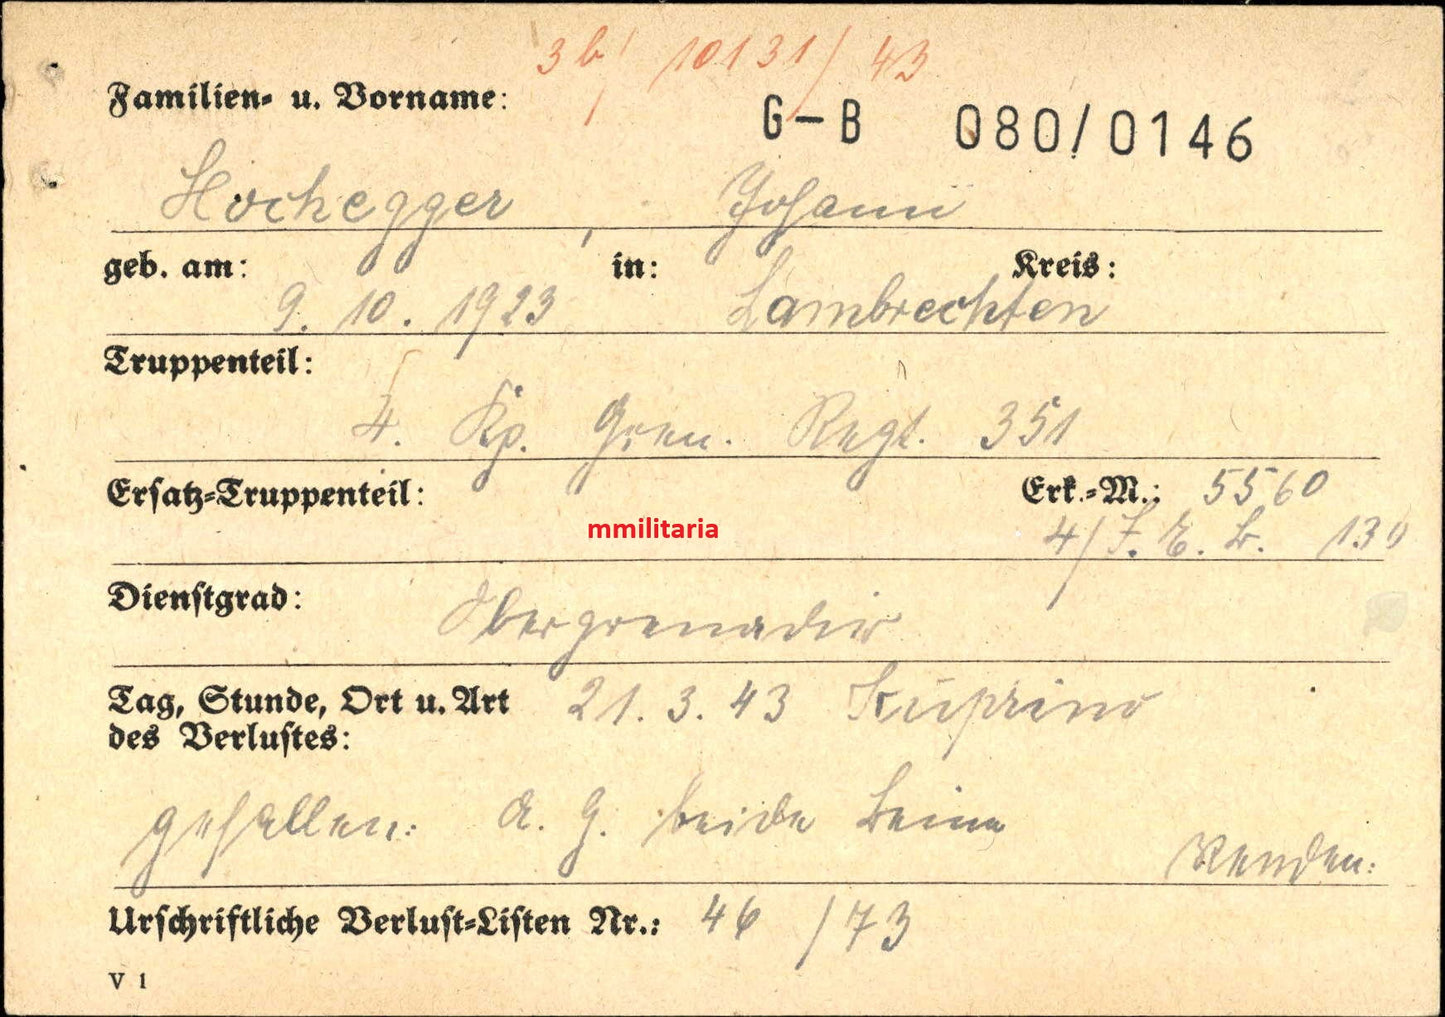 3b/ 10131/43
Familien- u. Vorname:
G–B 080/0146
Hochegger, Johann
geb. am: in: Kreis:
9. 10. 1923 Lambrechten
Truppenteil:
4. Kp. Gren. Regt. 351
Ersatz-Truppenteil: Erk.-M.: 5560
mmilitaria
4/J. E. B. 130
Dienstgrad:
Obergrenadier
Tag, Stunde, Ort u. Art 21. 3. 43 Kuprino
des Verlustes:
gefallen: A. G. beide Beine
Wenden.
Urschriftliche Verlust-Listen Nr.: 46 /73
V 1